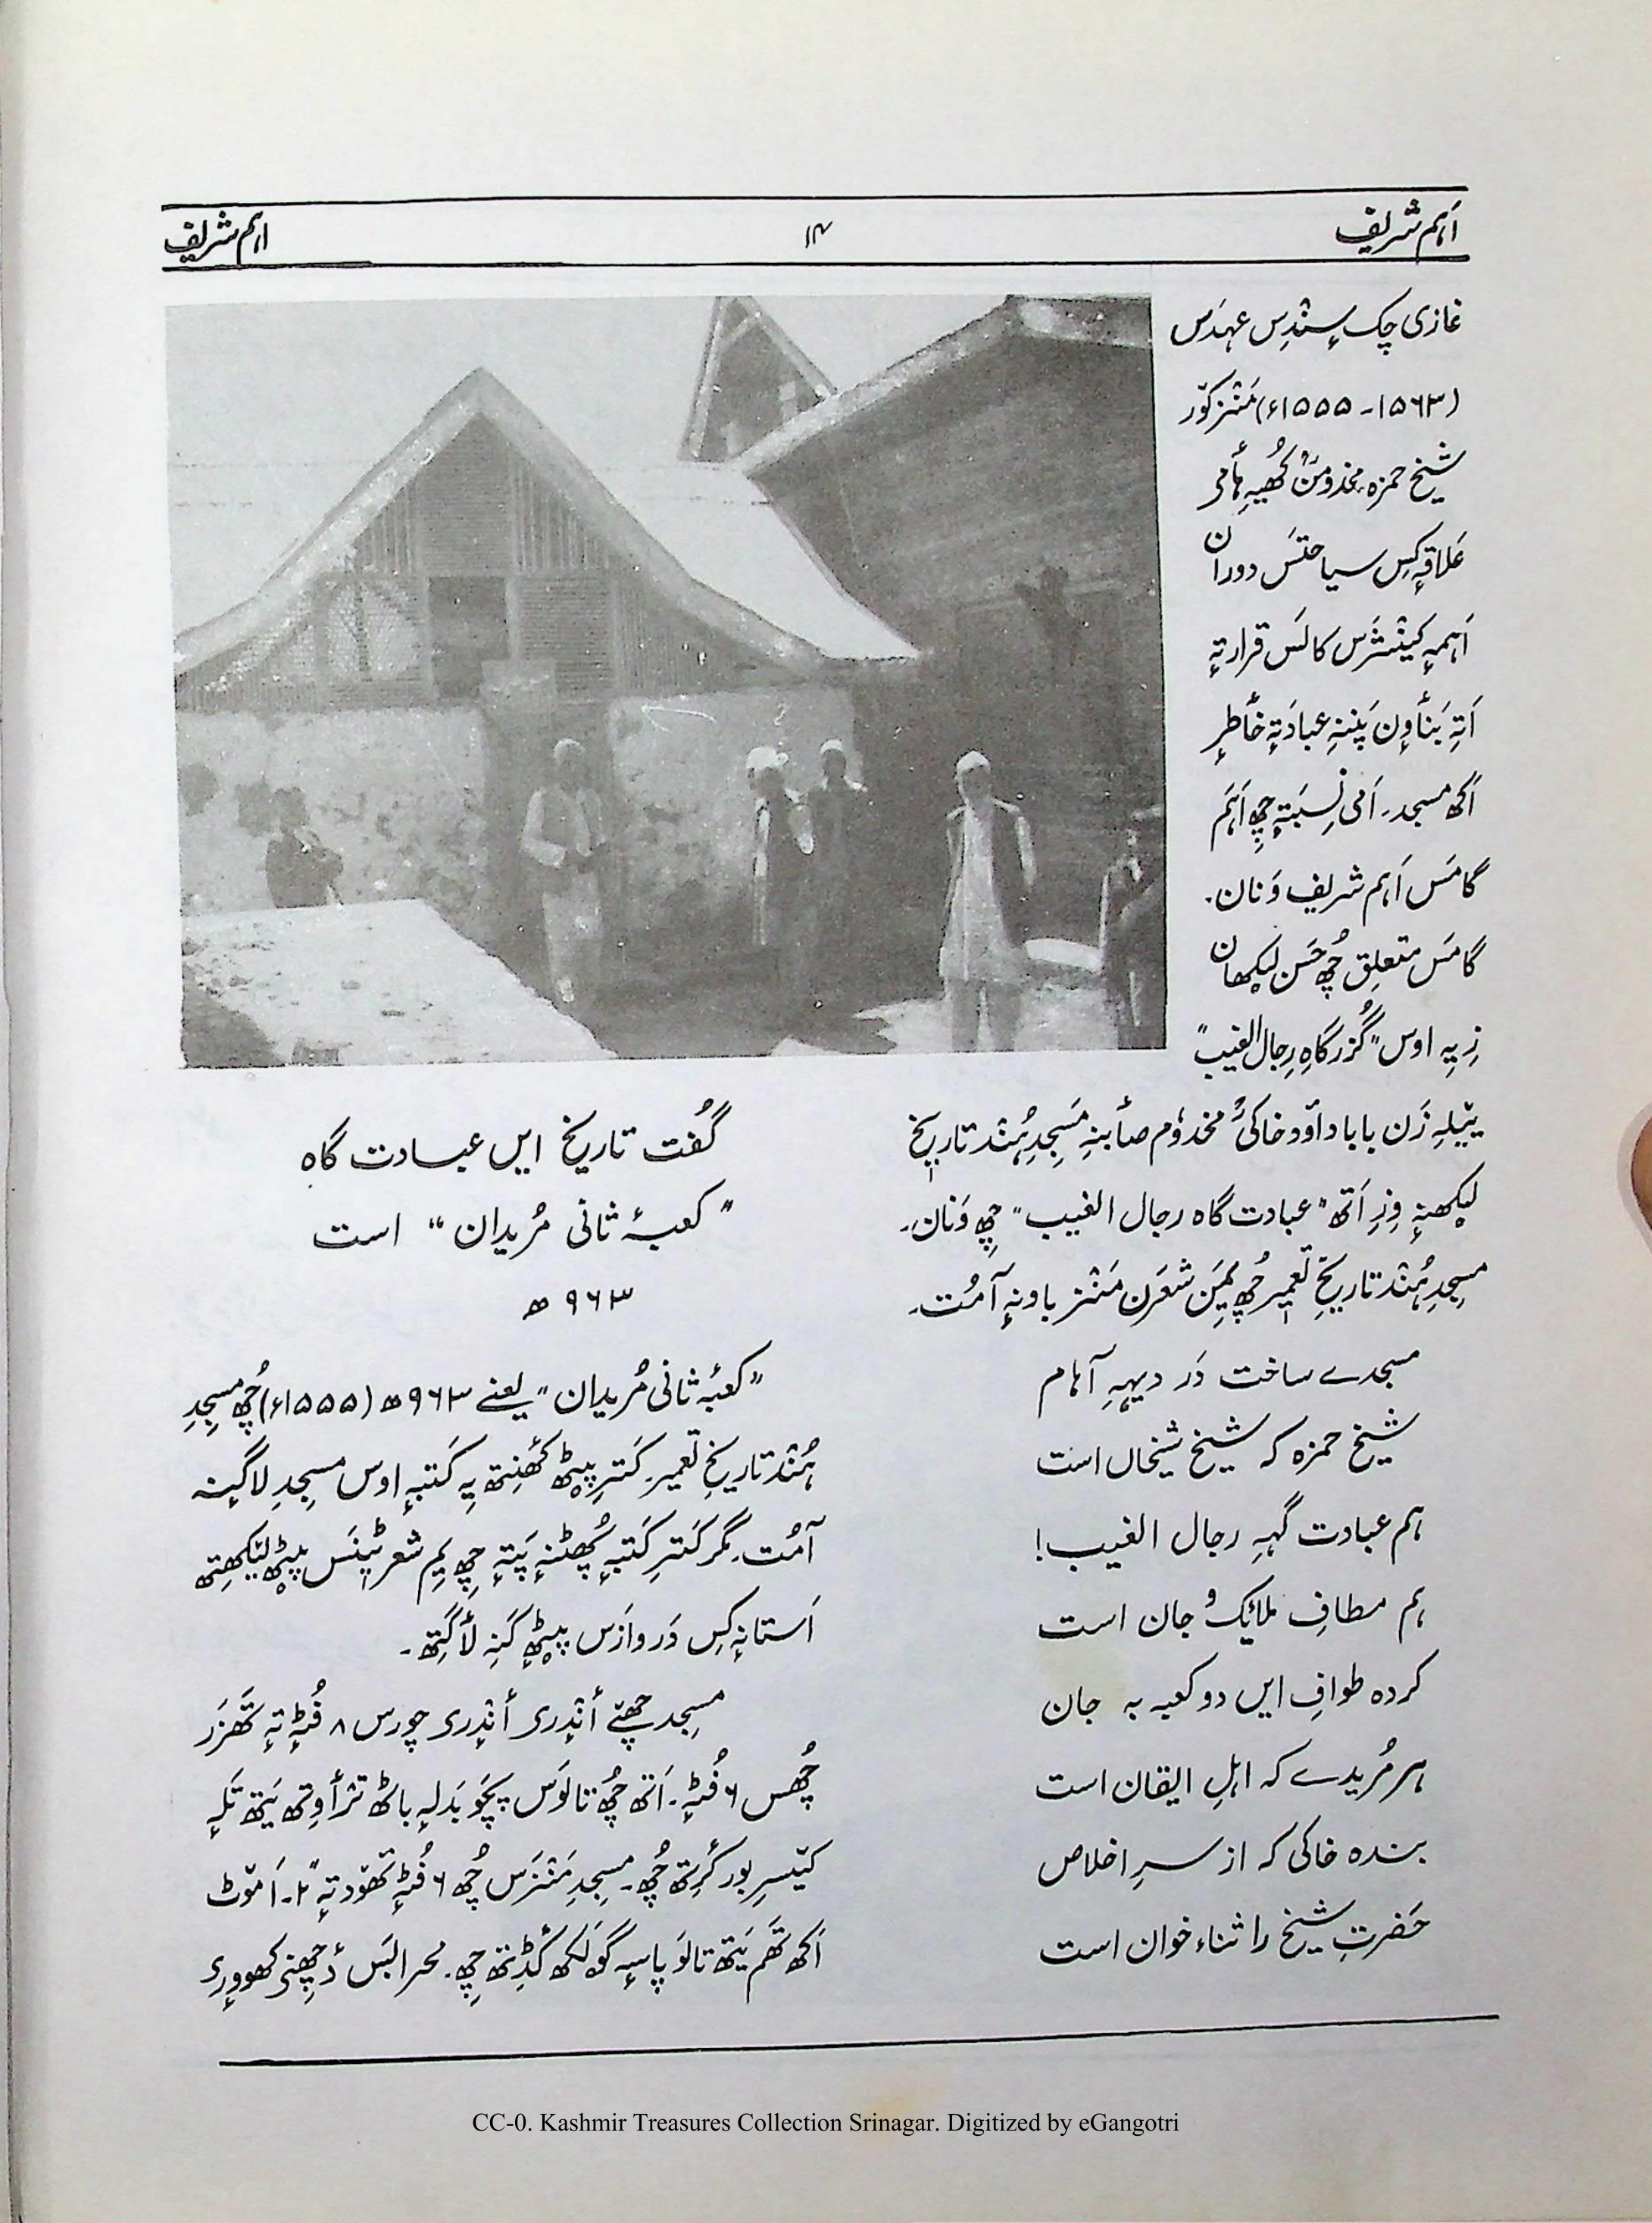 اَہم شریف
۱۴
اہم شریف
غازی چک سٕنٛدِس عہدَس
(۱۵۶۳۔۱۵۵۵ء) مَنٛز کوٚر
شیخ حمزہ مخدومَنؒ کُھیہِ ہٲمی
عَلاقہٕ کِس سیاحتَس دوران
اَہمہٕ کینٛژَس کالَس قرار تہٕ
اَتہِ بَنٲوِن پَننہِ عبادَتہٕ خٲطرٕ
اَکھ مسجد۔ اَمی نِسبَتہٕ چِھ اَہَم
گامَس اَہم شریف وَنان۔
گامَس متعلِق چُھ حَسن لیکھان
زِ یہِ اوس "گُزرگاہِ رِجال الغیب"
ییٚلہِ زَن بابا داوٗد خاکیؒ مخدوٗم صٲبنہِ مَسجِدِ ہُنٛد تاریٖخ
لیکھنہٕ وِزِ اَتھ "عبادت گاہ رجال الغیب" چِھ وَنان۔
مسجدِ ہُنٛد تاریٖخِ تعمیر چُھ یِمَن شعرَن مَنٛز باونہٕ آمُت۔
مسجدے ساخت دَر دیہہِ آہام
شیخ حمزہ کہ شیخ شیخاں است
ہم عبادت گہہِ رجال الغیب!
ہم مطافِ ملائِک و جان است
کردہ طوافِ ایں دو کعبہ بہ جان
ہر مُریدے کہ اہلِ ایقان است
بندہ خاکی کہ از سرِ اخلاص
حَضرتِ شیخ را ثناء خوان است
گُفت تاریخ ایں عبادت گاہ
"کعبۂ ثانی مُریدان" است
۹۶۳ ھ
"کعبۂ ثانی مُریدان" یعنے ۹۶۳ھ (۱۵۵۵ء) چُھ مسجِدِ
ہُنٛد تاریخِ تعمیر۔ کَنہِ پیٚٹھ کھٔنِتھ یہِ کَتبہٕ اوس مسجِدِ لاگنہٕ
آمُت۔ مگر کَتبہٕ پھُٹنہٕ پَتہٕ چِھ یِم شعر ٹینَس پیٚٹھ لیکھِتھ
آستانہٕ کِس دَروازَس پیٚٹھٕ کَنہِ لٲگِتھ۔
مسجد چھےٚ أنٛدری أنٛدری چورس ۸ فُٹہٕ تہٕ تَھزَر
چُھس ۶ فُٹہٕ۔ اَتھ چُھ تالوَس پَچَو بَدلہٕ باٹھ ترٛٲوِتھ یَتھ تَلہٕ
بور کٔرِتھ چُھ۔ مسجدِ مَنٛزَس چُھ ۶ فُٹہٕ تھوٚد تہٕ
اَکھ تَھم یَتھ تالَو پاسہٕ گولَکھ کٔڈِتھ چِھ۔ محرابَس دٔچِھنۍ کھووٕری
CC-0. Kashmir Treasures Collection Srinagar. Digitized by eGangotri